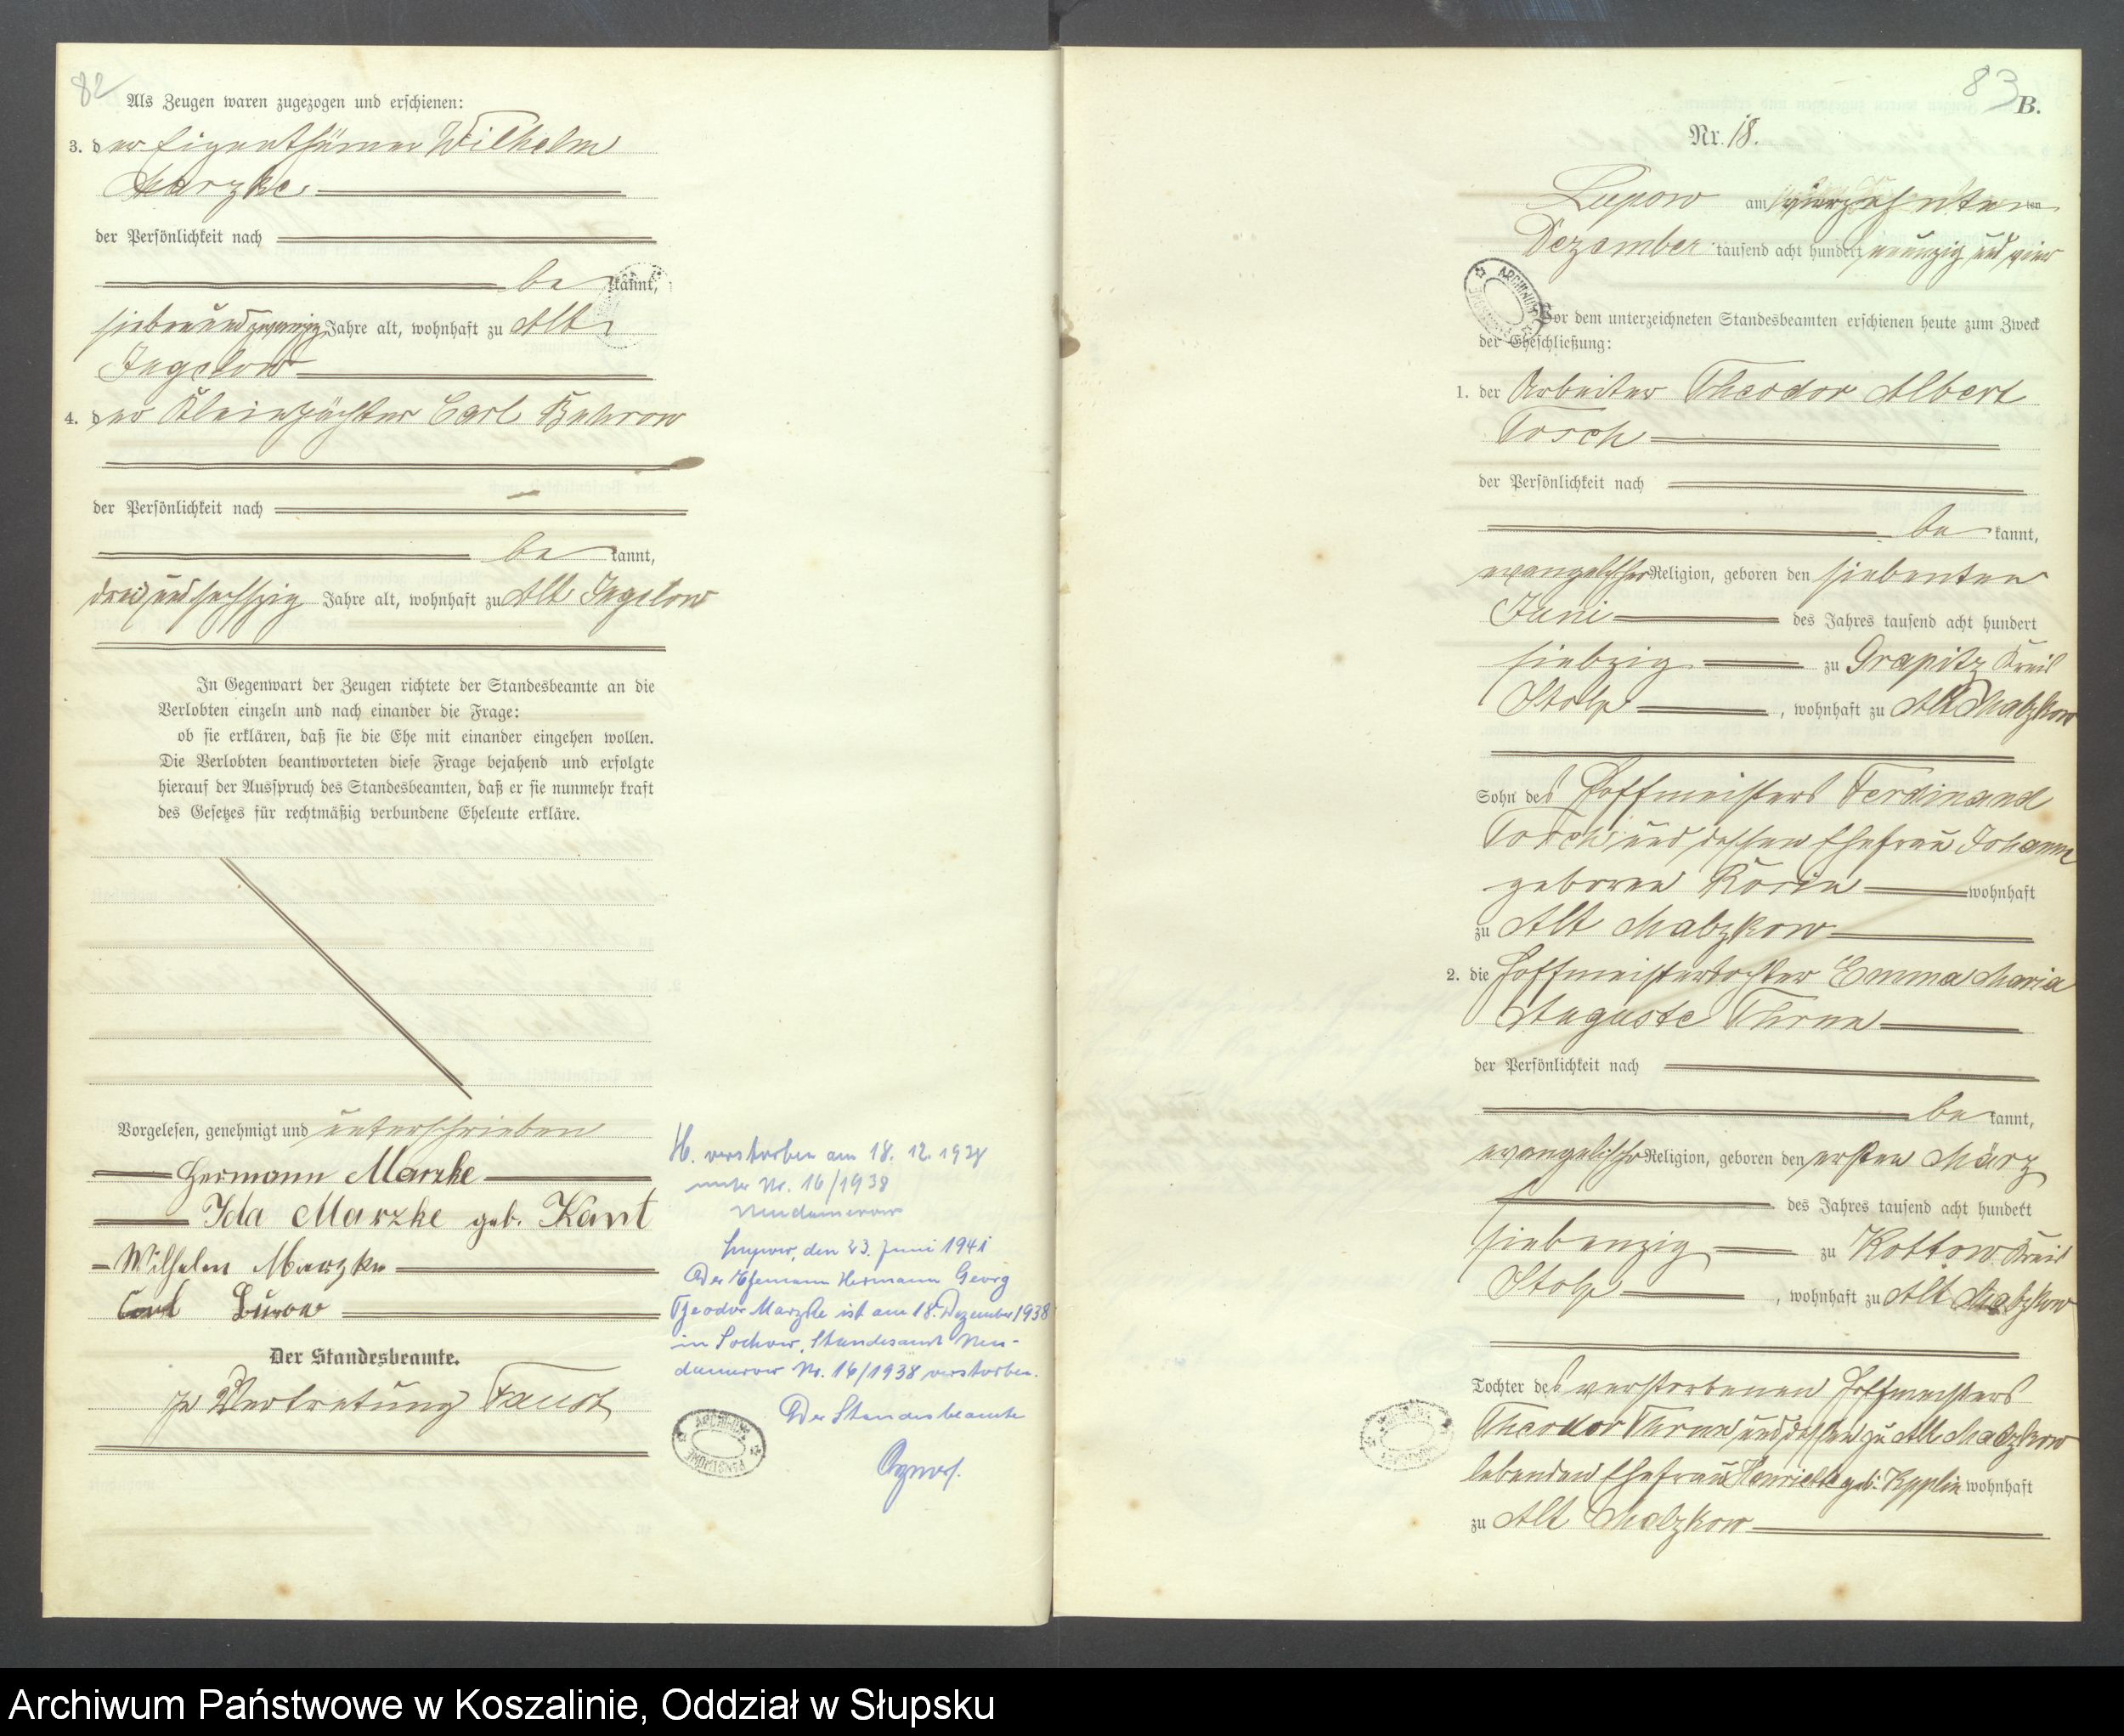 82
Als Zeugen waren zugezogen und erschienen:
3. der Eigenthümer Wilhelm
Marzke
der Persönlichkeit nach
be kannt,
siebenundzwanzig Jahre alt, wohnhaft zu Alt
Jugelow
4. der Kleinpächter Carl Buhrow
der Persönlichkeit nach
be kannt,
drei und sechszig Jahre alt, wohnhaft zu Alt Jugelow
In Gegenwart der Zeugen richtete der Standesbeamte an die
Verlobten einzeln und nach einander die Frage:
ob sie erklären, daß sie die Ehe mit einander eingehen wollen.
Die Verlobten beantworteten diese Frage bejahend und erfolgte
hierauf der Ausspruch des Standesbeamten, daß er sie nunmehr kraft
des Gesetzes für rechtmäßig verbundene Eheleute erkläre.
Vorgelesen, genehmigt und unterschrieben
Hermann Marzke
Ida Marzke geb. Kant
Wilhelm Marzke
Carl Burow
Der Standesbeamte.
In Vertretung Faust
H. verstorben am 18. 12. 1938
unter Nr. 16/1938
Neudamerow
Lupow, den 23. Juni 1941
Der Ehemann Hermann Georg
Theodor Marzke ist am 18. Dezember 1938
in Sochow, Standesamt Neu-
damerow Nr. 16/1938 verstorben.
Der Standesbeamte
ARCHIWUM PAŃSTWOWE
83
B.
Nr. 18.
Lupow am vierzehnten ten
Dezember tausend acht hundert neunzig und vier
ARCHIWUM PAŃSTWOWE
Vor dem unterzeichneten Standesbeamten erschienen heute zum Zweck
der Eheschließung:
1. der Arbeiter Theodor Albert
Torch
der Persönlichkeit nach
be kannt,
evangelischer Religion, geboren den siebenten
Juni des Jahres tausend acht hundert
siebzig zu Grapitz Kreis
Stolp, wohnhaft zu Alt Malzkow
Sohn des Hoffmeisters Ferdinand
Torch und dessen Ehefrau Johanne
geborene Korin wohnhaft
zu Alt Malzkow
2. die Hoffmeistertochter Emma Maria
Auguste Thrun
der Persönlichkeit nach
be kannt,
evangelischer Religion, geboren den ersten März
des Jahres tausend acht hundert
siebenzig zu Kottow Kreis
Stolp, wohnhaft zu Alt Malzkow
Tochter des verstorbenen Hoffmeisters
Theodor Thrun und dessen zu Alt Malzkow
lebenden Ehefrau Henriette geb. wohnhaft
zu Alt Malzkow
Archiwum Państwowe w Koszalinie, Oddział w Słupsku